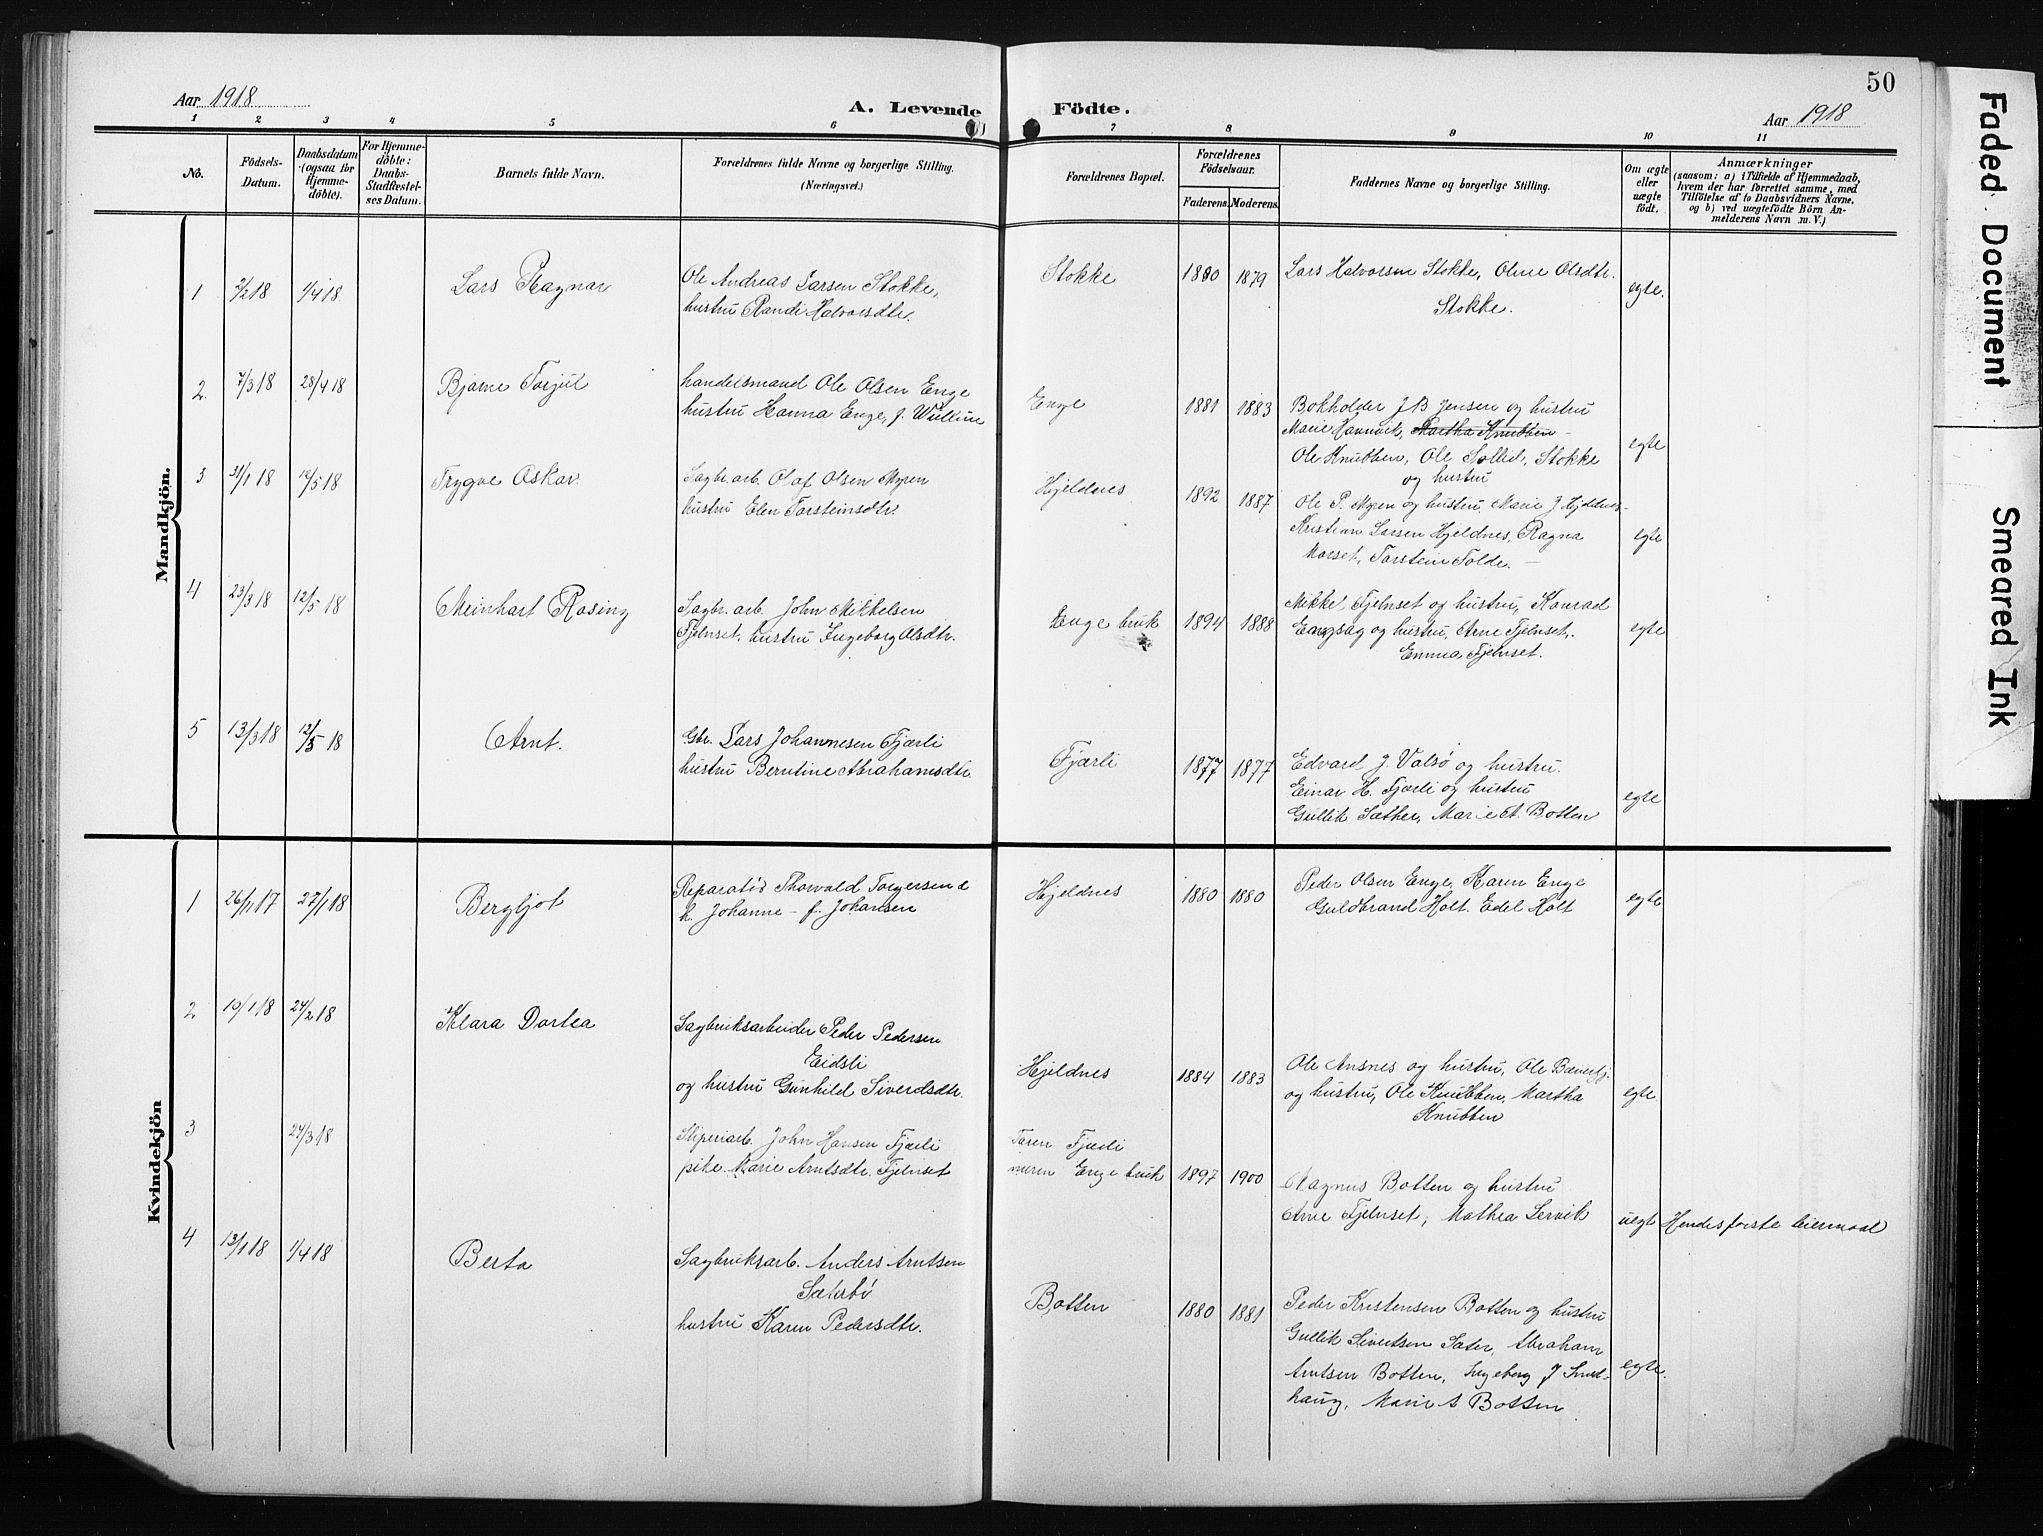 50
Aar 1918
A. Levende Födte.
Aar 1918
1 2 3 4 5 6 7 8 9 10 11
No.
Födsels-
Datum.
Daabsdatum
(ogsaa for
Hjemme-
døbte).
For Hjemme-
døbte:
Daabs-
Stadfæstel-
ses Datum.
Barnets fulde Navn.
Forældrenes fulde Navne og borgerlige Stilling.
(Næringsvei.)
Forældrenes Bopæl.
Forældrenes
Födselsaar.
Faderens. Moderens.
Faddernes Navne og borgerlige Stilling.
Om ægte
eller
uægte
födt.
Anmærkninger
(saasom: a) i Tilfælde af Hjemmedaab,
hvem der har forrettet samme, med
Tilföielse af to Daabsvidners Navne.
og b) ved uægtefödte Börn An-
melderens Navn m. V.)
Mandkjön.
1 2/2 18 1/4 18 Lars Ragnar
Ole Andreas Larsen Stokke,
hustru Randi Halvorsdtr.
Stokke 1880 1879
Lars Halvorsen Stokke, Oline Olsdtr.
Stokke.
egte.
2 7/3 18 28/4 18 Bjarne Torjul
handelsmand Ole Olsen Enge
hustru Hanna Enge, f. Wullum
Enge 1881 1883
Bokholder J B Jensen og hustru
Marie Havnvik, Martha Knubben
Ole Knubben, Ole Solli, Stokke
og hustru
egte
3 31/1 18 12/5 18 Trygve Oskar
Sagbr. arb. Olaf Olsen Myren
hustru Elen Torsteinsdtr.
Hjeldnes 1892 1887
Ole P. Myren og hustru, Marie J Hjeldnes-
Kristian Larsen Hjeldnes, Ragna
Morset, Torstein Tolde.
egte
4 23/3 18 12/5 18 Meinhart Rosing
Sagbr. arb. John Mikkelsen
Fjelnset, hustru Ingeborg Olsdtr.
Enge bruk 1894 1888
Mikkel Fjelnset og hustru, Konrad
Engsag og hustru, Arne Fjelnset,
Emma Fjelnset.
egte
5 13/3 18 12/5 18 Arnt.
Gbr. Lars Johannesen Fjærli
hustru Berntine Abrahamsdtr.
Fjærli 1877 1877
Edvard J. Valsø og hustru.
Einar H. Fjærli og hustru
Gullik Sæther, Marie A. Botten
egte
Kvindekjön
1 26/11 17 27/1 18 Bergljot
Reparatør Thorvald Torgersen &
h. Johanne - f. Johansen
Hjeldnes 1880 1880
Peder Olsen Enge, Karen Enge
Guldbrand Holt. Edel Holt
egte
2 10/1 18 24/2 18 Klara Dortea
Sagbruksarbeider Peder Pedersen
Eidsli
og hustru Gunhild Siverdsdtr.
Hjeldnes 1884 1883
Ole Ansnes og hustru, Ole
og hustru, Ole Knubben, Martha
Knubben
egte
3 24/3 18
Sliperiarb. John Hansen Fjærli
pike. Marie Arntsdtr. Fjelnset
Faren Fjærli
moren Enge bruk
1897 1900
Magnus Botten og hustru
Arne Fjelnset, Mathea Lervik
uegt Hendes første leiermaal
4 13/1 18 1/4 18 Berta
Sagbruksarb. Anders Arntsen
Sæterbö
hustru Karen Pedersdtr.
Botten 1880 1881
Peder Kristensen Botten og hustru
Gullik Sivertsen Sæter, Abraham
Arntsen Botten, Ingeborg J
haug, Marie A Botten
egte.
Faded Document
Smeared Ink